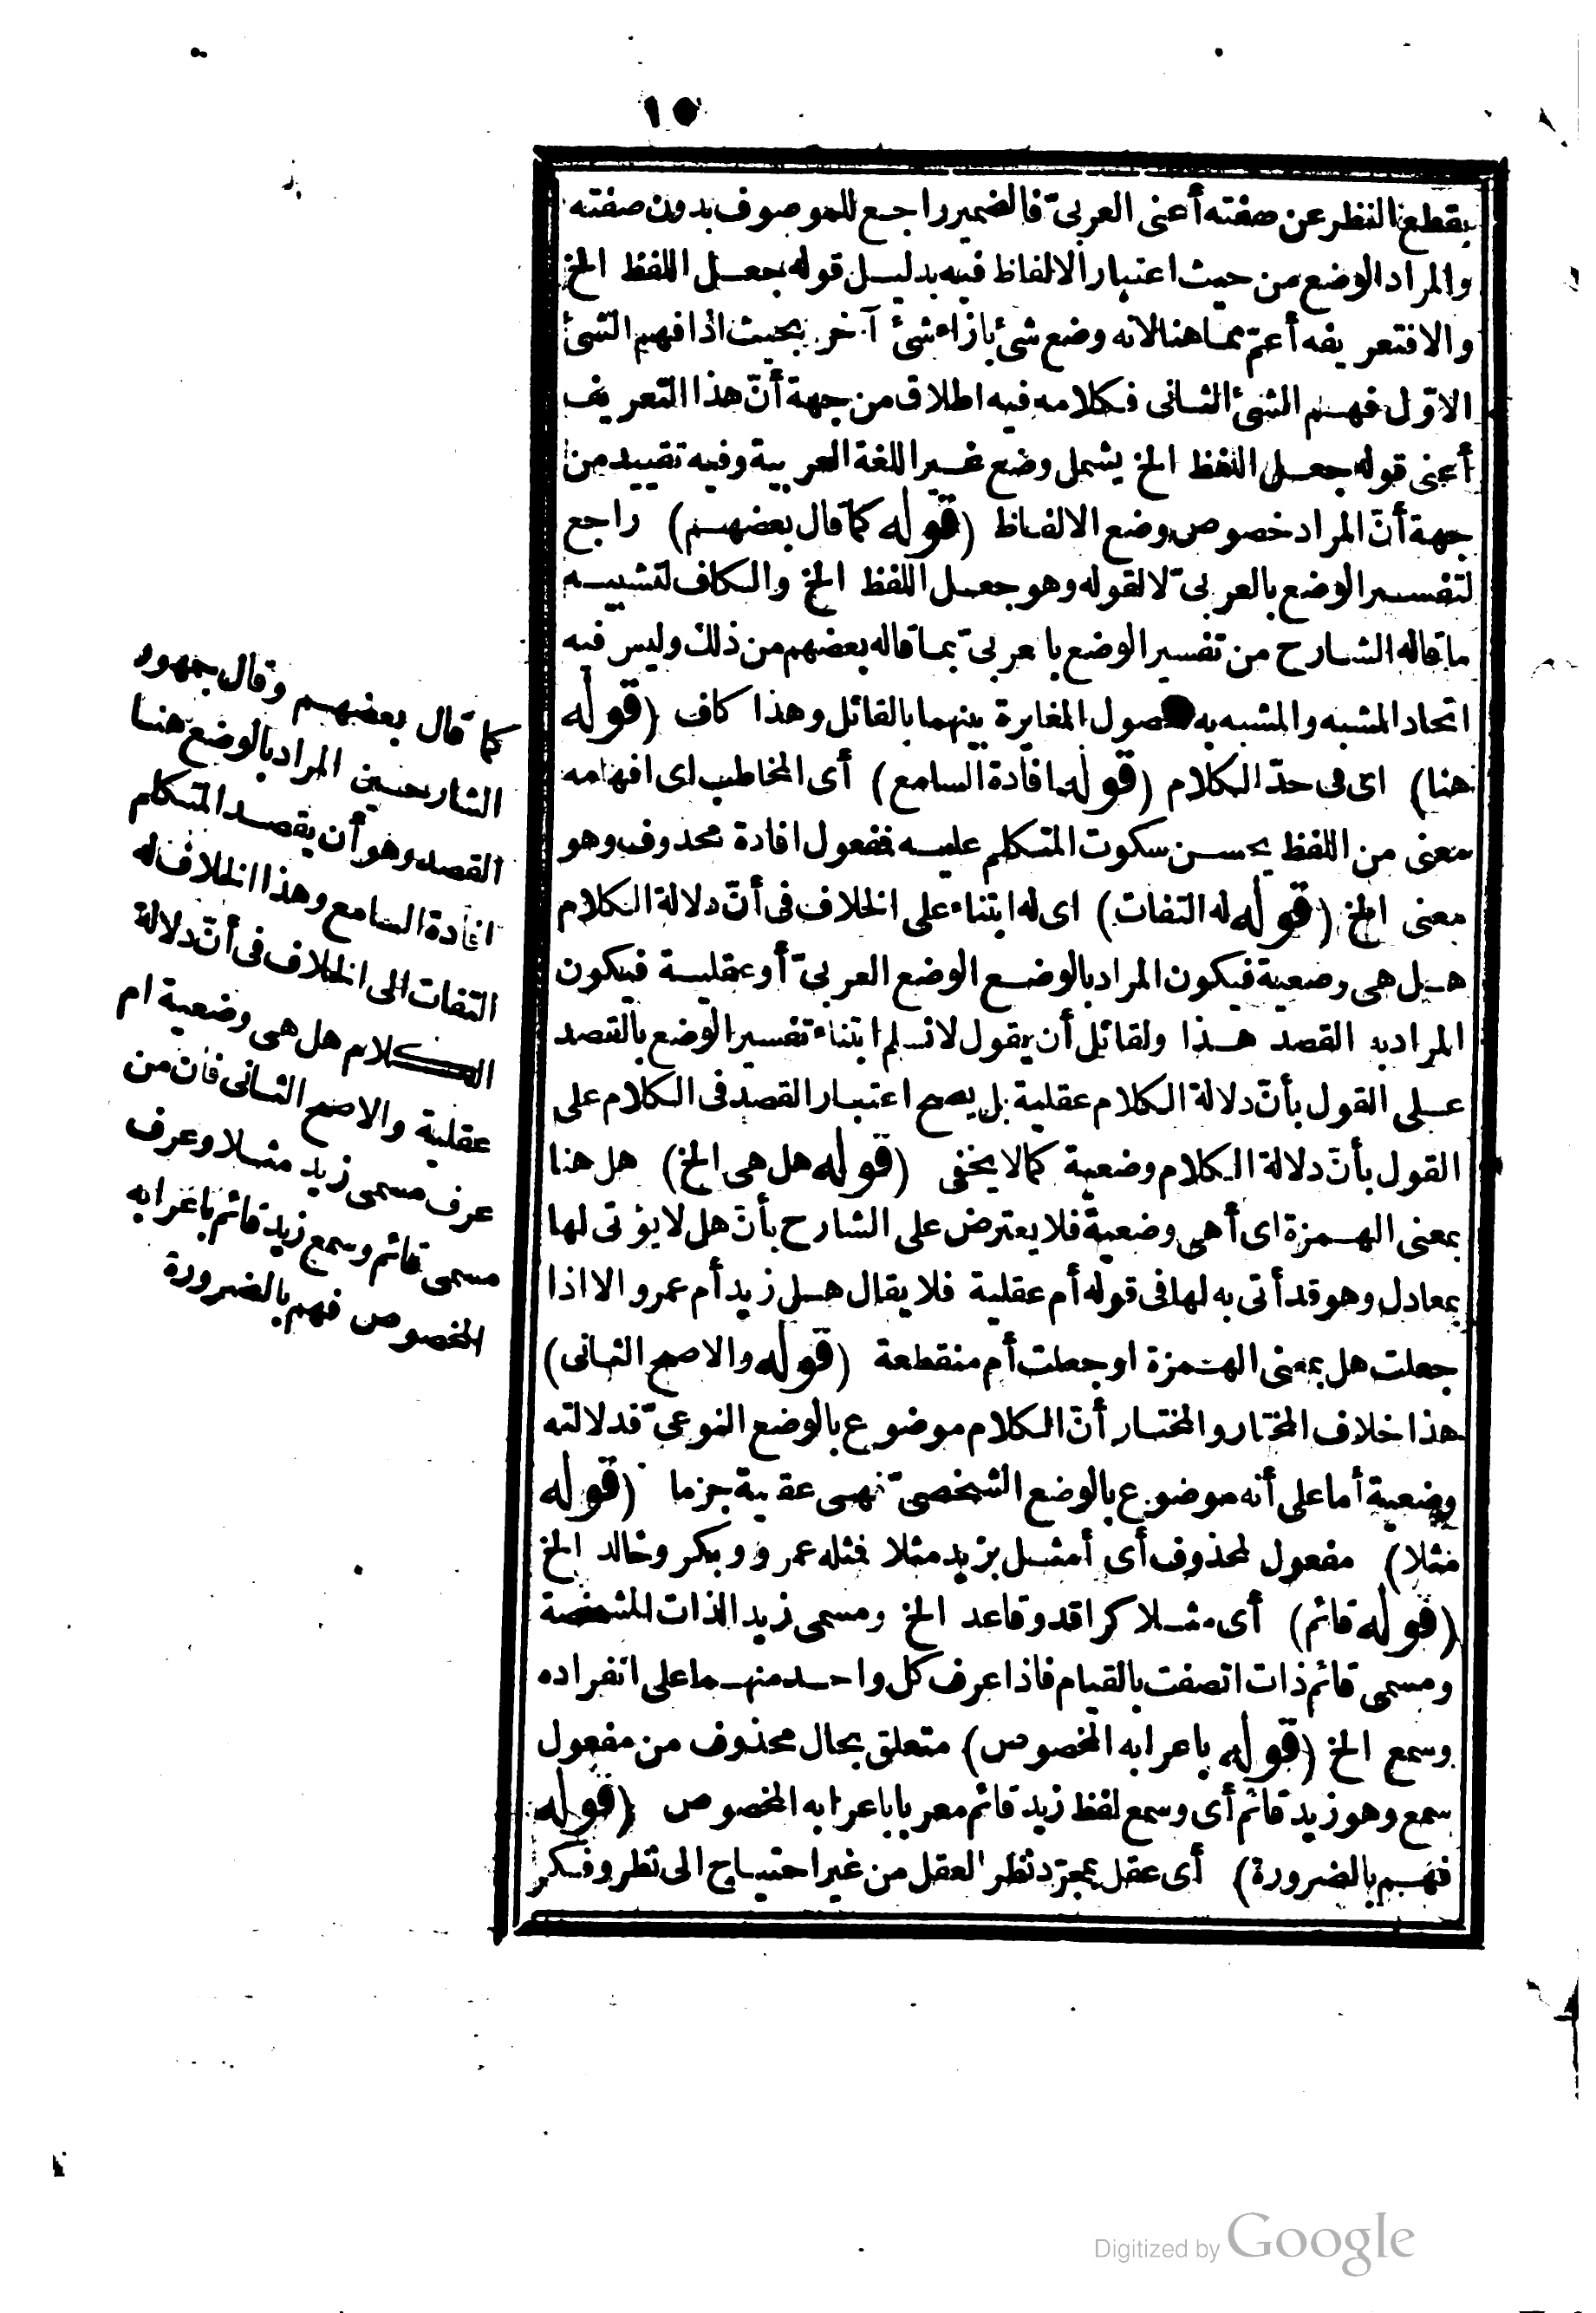 ١٥
بقطع النظر عن صفته أعنى العربىّ فالضمير راجع للموصوف بدون صفته
والمراد الوضع من حيث اعتبار الالفاظ فيه بدليل قوله جعل اللفظ الخ
والا فتعريفه أعمّ مما هنا لانه وضع شئ بازاء شئ آخر بحيث اذا فهم الشئ
الاوّل فهم الشئ الثانى فكلامه فيه اطلاق من جهة أنّ هذا التعريف
أعنى قوله جعل اللفظ الخ يشمل وضع غير اللغة العربية وفيه تقييد من
جهة أنّ المراد خصوص وضع الالفاظ (قوله كما قال بعضهم) راجع
لتفسير الوضع بالعربىّ لا لقوله وهو جعل اللفظ الخ والكاف لتشبيه
ما قاله الشارح من تفسير الوضع بالعربىّ بما قاله بعضهم من ذلك وليس فيه
اتحاد المشبه والمشبه به لحصول المغايرة بينهما بالقائل وهذا كاف (قوله
هنا) اى فى حدّ الكلام (قوله افادة السامع) أى المخاطب اى افهامه
معنى من اللفظ يحسن سكوت المتكلم عليه ففعول افادة محذوف وهو
معنى الخ (قوله له التفات) اى له ابتناء على الخلاف فى أنّ دلالة الكلام
هل هى وضعية فيكون المراد بالوضع الوضع العربىّ أو عقلية فيكون
المراد به القصد هذا ولقائل أن يقول لا نسلم ابتناء تفسير الوضع بالقصد
على القول بأنّ دلالة الكلام عقلية بل يصح اعتبار القصد فى الكلام على
القول بأنّ دلالة الكلام وضعية كما لا يخفى (قوله هل هى الخ) هل هنا
بمعنى الهمزة اى أهى وضعية فلا يعترض على الشارح بأنّ هل لا يؤتى لها
بمعادل وهو قد أتى به لها فى قوله أم عقلية فلا يقال هل زيد أم عمرو الا اذا
جعلت هل بمعنى الهمزة او جعلت أم منقطعة (قوله والاصح الثانى)
هذا خلاف المختار والمختار أنّ الكلام موضوع بالوضع النوعىّ فدلالته
وضعية أما على أنه موضوع بالوضع الشخصىّ فهى عقلية جزما (قوله
مثلا) مفعول لمحذوف أى أمثل بزيد مثلا فمثله عمرو وبكر وخالد الخ
(قوله قائم) أى مثلا كراقد وقاعد الخ ومسمى زيد الذات المشخصة
ومسمى قائم ذات اتصفت بالقيام فاذا عرف كل واحد منهما على انفراده
وسمع الخ (قوله باعرابه المخصوص) متعلق بحال محذوف من مفعول
سمع وهو زيد قائم أى وسمع لفظ زيد قائم معربا باعرابه المخصوص (قوله
فهم بالضرورة) أى عقل بمجرّد نظر العقل من غير احتياج الى نظر وفكر
كما قال بعضهم وقال جمهور
الشارحين المراد بالوضع هنا
القصد وهو أن يقصد المتكلم
افادة السامع وهذا الخلاف له
التفات الى الخلاف فى أنّ دلالة
الكلام هل هى وضعية ام
عقلية والاصح الثانى فان من
عرف مسمى زيد مثلا وعرف
مسمى قائم وسمع زيد قائم باعرابه
المخصوص فهم بالضرورة
Digitized by Google